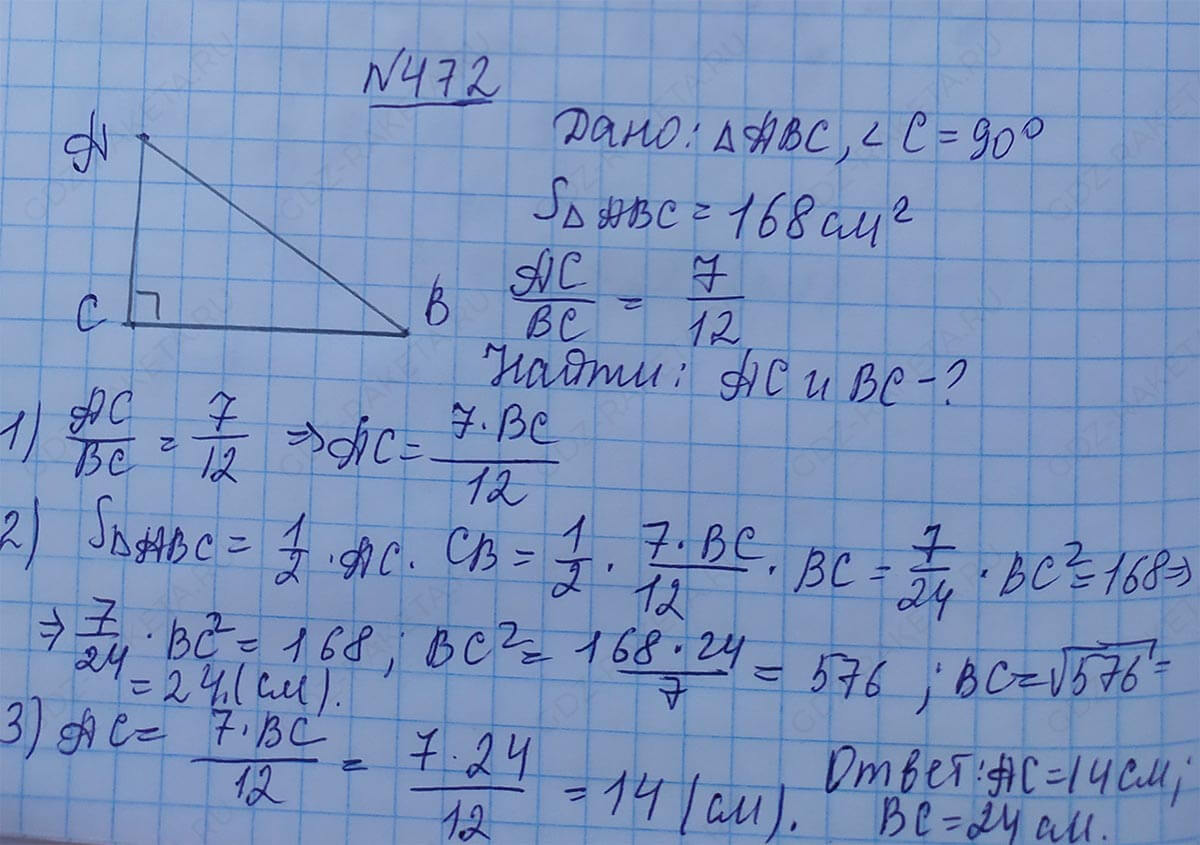 №472
A
C
B
Дано: △ABC, ∠C = 90°
S△ABC = 168 см²
AC/BC = 7/12
Найти: AC и BC - ?
1) AC/BC = 7/12 ⇒ AC = 7·BC/12
2) S△ABC = 1/2 · AC · CB = 1/2 · 7·BC/12 · BC = 7/24 · BC² = 168 ⇒
⇒ 7/24 · BC² = 168; BC² = 168·24/7 = 576; BC = √576 =
= 24 (см).
3) AC = 7·BC/12 = 7·24/12 = 14 (см).
Ответ: AC = 14 см;
BC = 24 см.
GDZ-RAKETA.RU